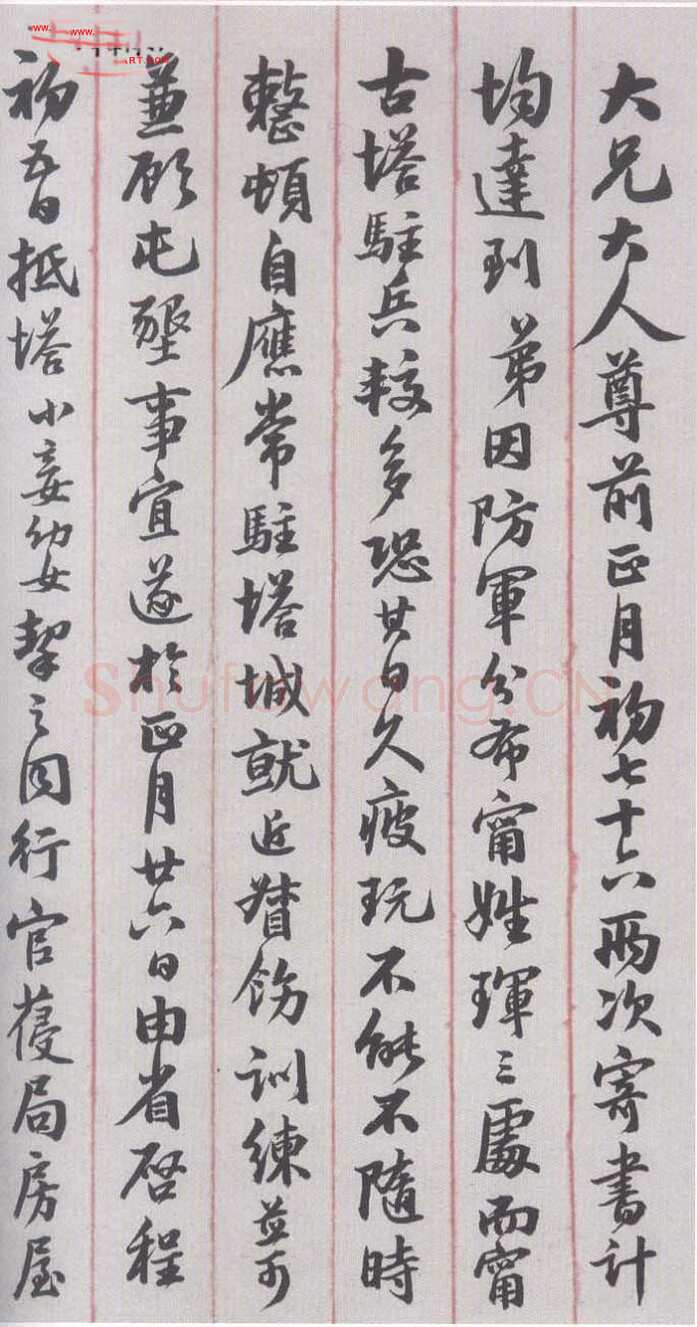 大兄大人尊前正月初七十六兩次寄書計
均達到弟因防軍分布甯姓琿三處而甯
古塔駐兵較多恐其日久疲玩不能不隨時
整頓自應常駐塔城就近督飭訓練並可
兼顧屯墾事宜遂於正月廿六日由省啓程
初五日抵塔小妾幼女挈之同行官葠局房屋
www.
www.
RT.COM
Shufawang.CN